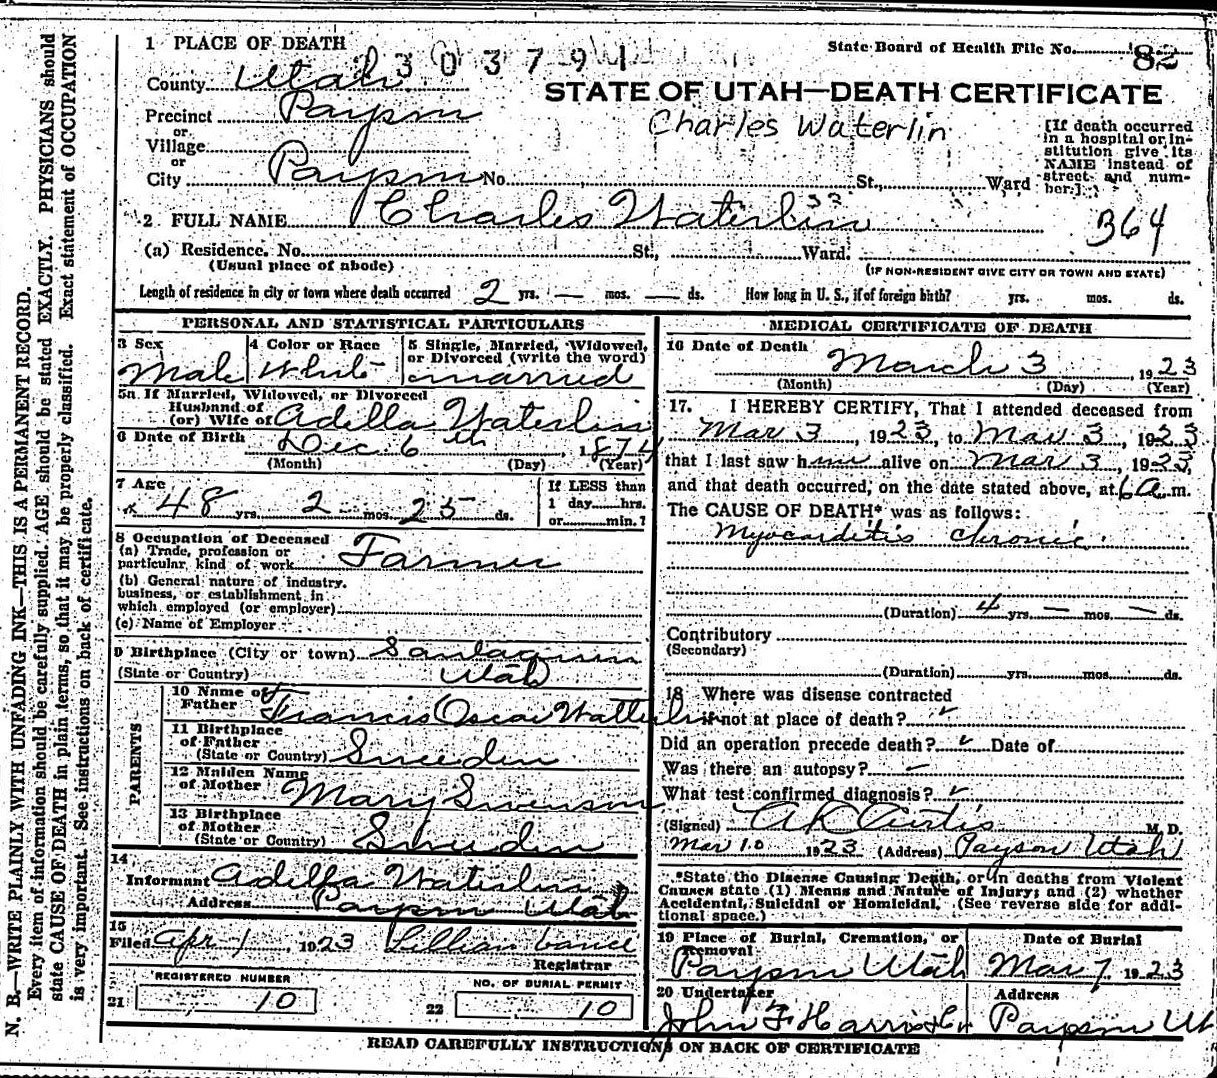 N. B.—WRITE PLAINLY WITH UNFADING INK—THIS IS A PERMANENT RECORD.
Every item of information should be carefully supplied. AGE should be stated EXACTLY. PHYSICIANS should
state CAUSE OF DEATH in plain terms, so that it may be properly classified. Exact statement of OCCUPATION
is very important. See instructions on back of certificate.
1 PLACE OF DEATH
303791
State Board of Health File No. 82
County Utah
STATE OF UTAH—DEATH CERTIFICATE
Precinct Payson
Charles Waterlin
or
Village
or
City Payson No. St., Ward
[If death occurred
in a hospital or in-
stitution give its
NAME instead of
street and num-
ber.]
2 FULL NAME Charles Waterlin
364
(a) Residence. No. St., Ward.
(Usual place of abode)
(IF NON-RESIDENT GIVE CITY OR TOWN AND STATE)
Length of residence in city or town where death occurred 2 yrs. — mos. — ds. How long in U. S., if of foreign birth? yrs. mos. ds.
PERSONAL AND STATISTICAL PARTICULARS
3 Sex
Male
4 Color or Race
White
5 Single, Married, Widowed,
or Divorced (write the word)
married
5a If Married, Widowed, or Divorced
Husband of
(or) Wife of Adella Waterlin
6 Date of Birth Dec. 6th, 1874
(Month) (Day) (Year)
7 Age
48 yrs. 2 mos. 25 ds.
If LESS than
1 day hrs.
or min.?
8 Occupation of Deceased
(a) Trade, profession or
particular kind of work Farmer
(b) General nature of industry.
business, or establishment in
which employed (or employer)
(c) Name of Employer
9 Birthplace (City or town) Santaquin
(State or Country) Utah
PARENTS
10 Name of
Father Francis Oscar Watterlin
11 Birthplace
of Father
(State or Country) Sweeden
12 Maiden Name
of Mother Mary Swenson
13 Birthplace
of Mother
(State or Country) Sweeden
14
Informant Adella Waterlin
Address Payson Utah
15
Filed Apr 1, 1923 Lillian Vance
Registrar
REGISTERED NUMBER
21 10
NO. OF BURIAL PERMIT
22 10
MEDICAL CERTIFICATE OF DEATH
16 Date of Death
March 3, 1923
(Month) (Day) (Year)
17. I HEREBY CERTIFY, That I attended deceased from
Mar 3, 1923, to Mar 3, 1923
that I last saw him alive on Mar 3, 1923,
and that death occurred, on the date stated above, at 6 a.m.
The CAUSE OF DEATH* was as follows:
Myocarditis chronic
(Duration) 4 yrs. — mos. — ds.
Contributory
(Secondary)
(Duration) yrs. mos. ds.
18 Where was disease contracted
if not at place of death? ✓
Did an operation precede death? ✓ Date of
Was there an autopsy? —
What test confirmed diagnosis? ✓
(Signed) A K Curtis M. D.
Mar 10 1923 (Address) Payson Utah
*State the Disease Causing Death, or in deaths from Violent
Causes state (1) Means and Nature of Injury; and (2) whether
Accidental, Suicidal or Homicidal. (See reverse side for addi-
tional space.)
19 Place of Burial, Cremation, or
Removal
Payson Utah
Date of Burial
Mar 7 1923
20 Undertaker
John F Harris
Address
Payson Ut
READ CAREFULLY INSTRUCTIONS ON BACK OF CERTIFICATE